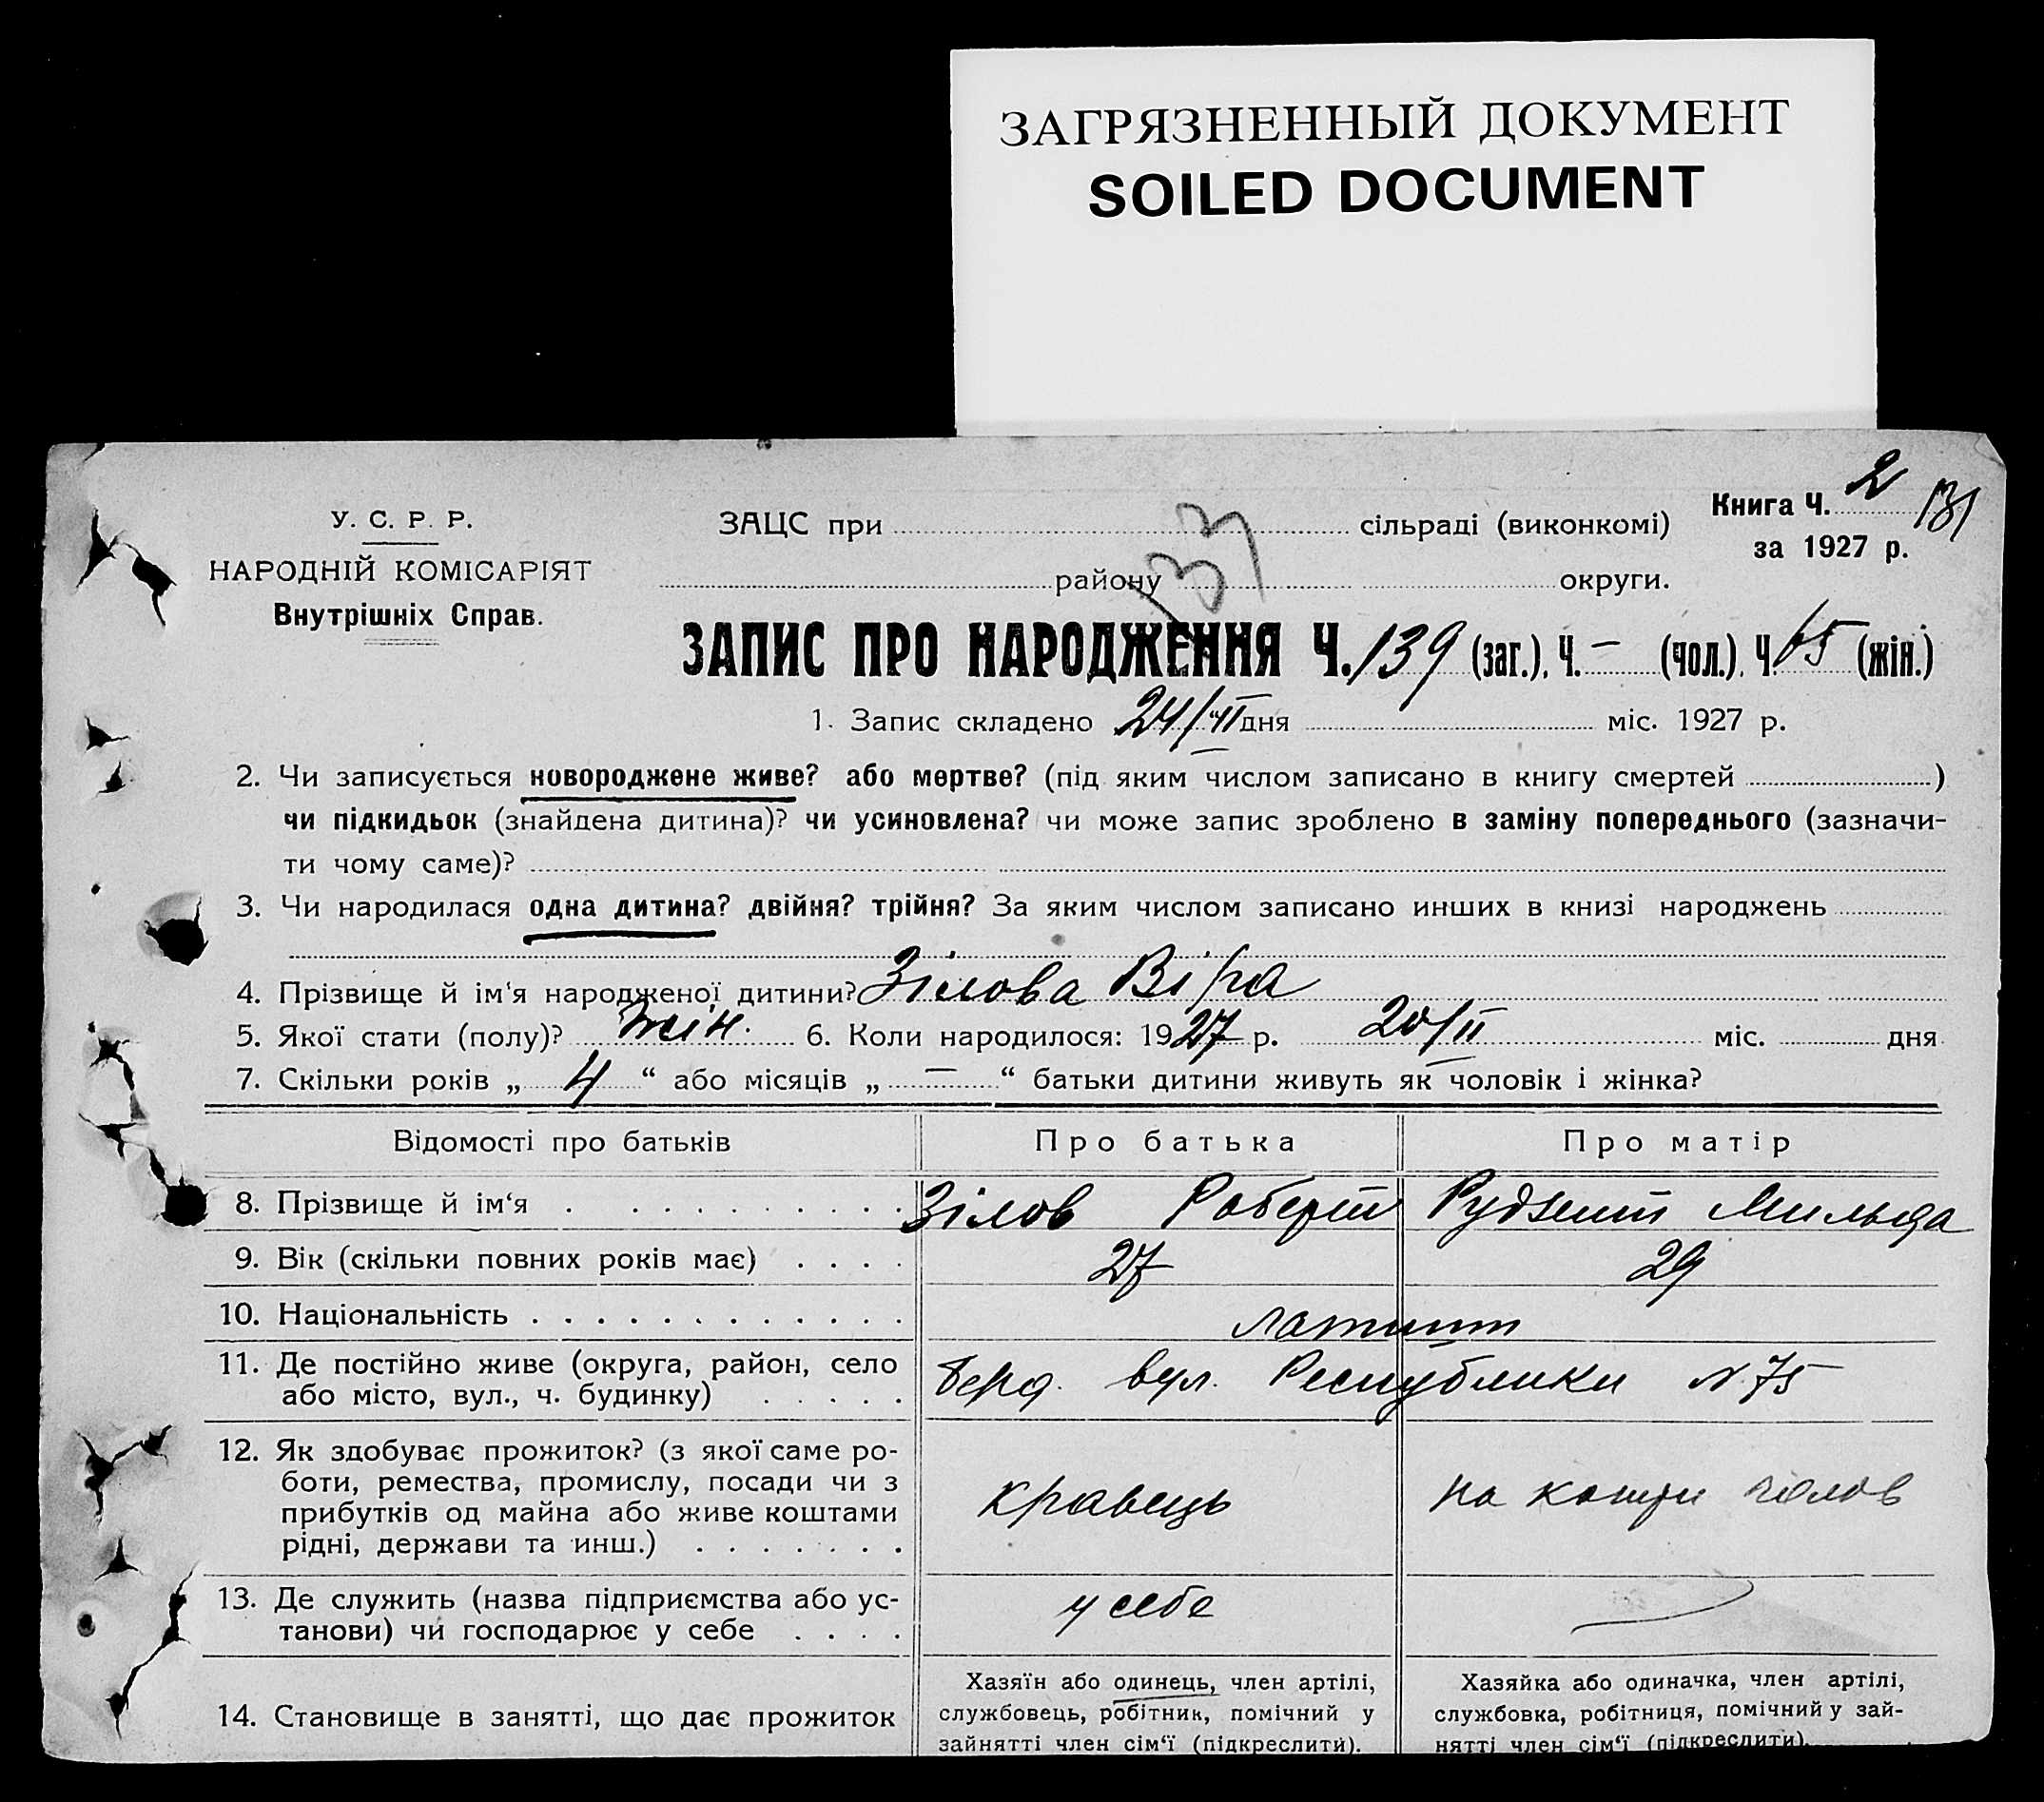 ЗАГРЯЗНЕННЫЙ ДОКУМЕНТ
SOILED DOCUMENT
Книга Ч. 2 131
за 1927 р.
У. С. Р. Р.
НАРОДНІЙ КОМІСАРІЯТ
Внутрішніх Справ.
ЗАЦС при сільраді (виконкомі)
району округи.
37
ЗАПИС ПРО НАРОДЖЕННЯ Ч. 139 (заг.), Ч. – (чол.), Ч. 65 (жін.)
1. Запис складено 24/ІІ дня міс. 1927 р.
2. Чи записується новороджене живе? або мертве? (під яким числом записано в книгу смертей )
чи підкидьок (знайдена дитина)? чи усиновлена? чи може запис зроблено в заміну попереднього (зазначи-
ти чому саме)?
3. Чи народилася одна дитина? двійня? трійня? За яким числом записано инших в книзі народжень
4. Прізвище й ім'я народженої дитини? Зілова Віра
5. Якої стати (полу)? жін. 6. Коли народилося: 1927 р. 20/ІІ міс. дня
7. Скільки років „ 4 “ або місяців „ — “ батьки дитини живуть як чоловік і жінка?
Відомості про батьків Про батька Про матір
8. Прізвище й ім‘я Зілов Роберт Рудзит Мильда
9. Вік (скільки повних років має) 27 29
10. Національність латиш
11. Де постійно живе (округа, район, село
або місто, вул., ч. будинку) Берд. вул. Республики № 75
12. Як здобуває прожиток? (з якої саме ро-
боти, ремества, промислу, посади чи з
прибутків од майна або живе коштами
рідні, держави та инш.) кравець на кошти чолов
13. Де служить (назва підприємства або ус-
танови) чи господарює у себе у себе
14. Становище в занятті, що дає прожиток
Хазяїн або одинець, член артілі,
службовець, робітник, помічний у
зайнятті член сім‘ї (підкреслити).
Хазяйка або одиначка, член артілі,
службовка, робітниця, помічний у зай-
нятті член сім‘ї (підкреслити).